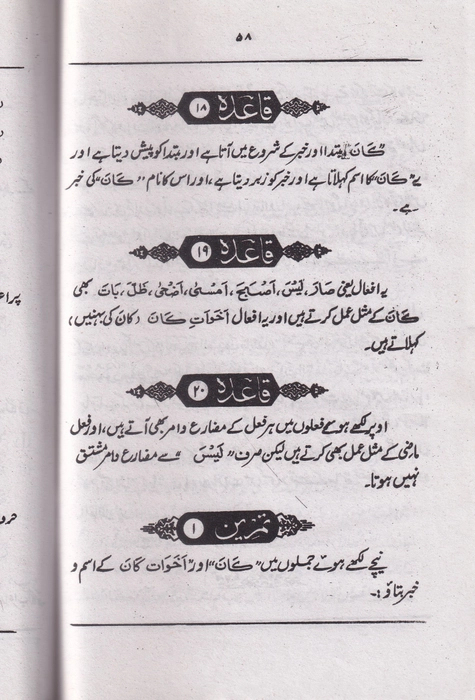 ۵۸
قاعدہ ۱۸
"کَانَ" مبتدا اور خبر کے شروع میں آتا ہے اور مبتدا کو پیش دیتا ہے اور
یہ "کَانَ" کا اسم کہلاتا ہے اور خبر کو زبر دیتا ہے، اور اس کا نام "کَانَ" کی خبر
ہے۔
قاعدہ ۱۹
یہ افعال یعنی صَارَ، لَیْسَ، اَصْبَحَ، اَمْسٰی، اَضْحٰی، ظَلَّ، بَاتَ بھی
کَانَ کے مثل عمل کرتے ہیں اور یہ افعال اَخَوَاتِ کَانَ (کان کی بہنیں)
کہلاتے ہیں۔
قاعدہ ۲۰
اوپر لکھے ہوئے فعلوں میں ہر فعل کے مضارع و امر بھی آتے ہیں، اور فعل
ماضی کے مثل عمل بھی کرتے ہیں لیکن صرف "لَیْسَ" سے مضارع و امر مشتق
نہیں ہوتا۔
تمرین ۱
نیچے لکھے ہوئے جملوں میں "کَانَ" اور "اَخَوَات کَانَ کے اسم و
خبر بتاؤ :۔